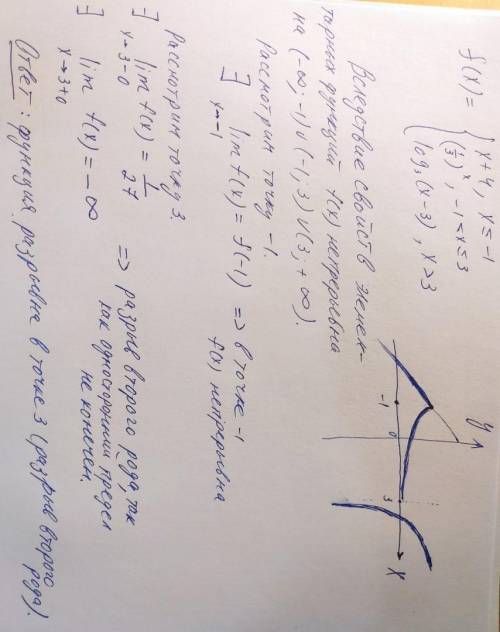 f(x) = { x+4, x ≤ -1
(1/3)^x, -1<x≤3
log₃(x-3), x>3
y
-1
0
3
x
Вследствие свойств элемен-
тарных функций f(x) непрерывна
на (-∞; -1) ∪ (-1; 3) ∪ (3; +∞).
Рассмотрим точку -1.
∃ lim f(x) = f(-1) => в точке -1
x→-1 f(x) непрерывна
Рассмотрим точку 3.
∃ lim f(x) = 1/27
x→3-0
=> разрыв второго рода, так
как односторонний предел
не конечен.
∃ lim f(x) = -∞
x→3+0
Ответ: функция разрывна в точке 3 (разрыв второго
рода).